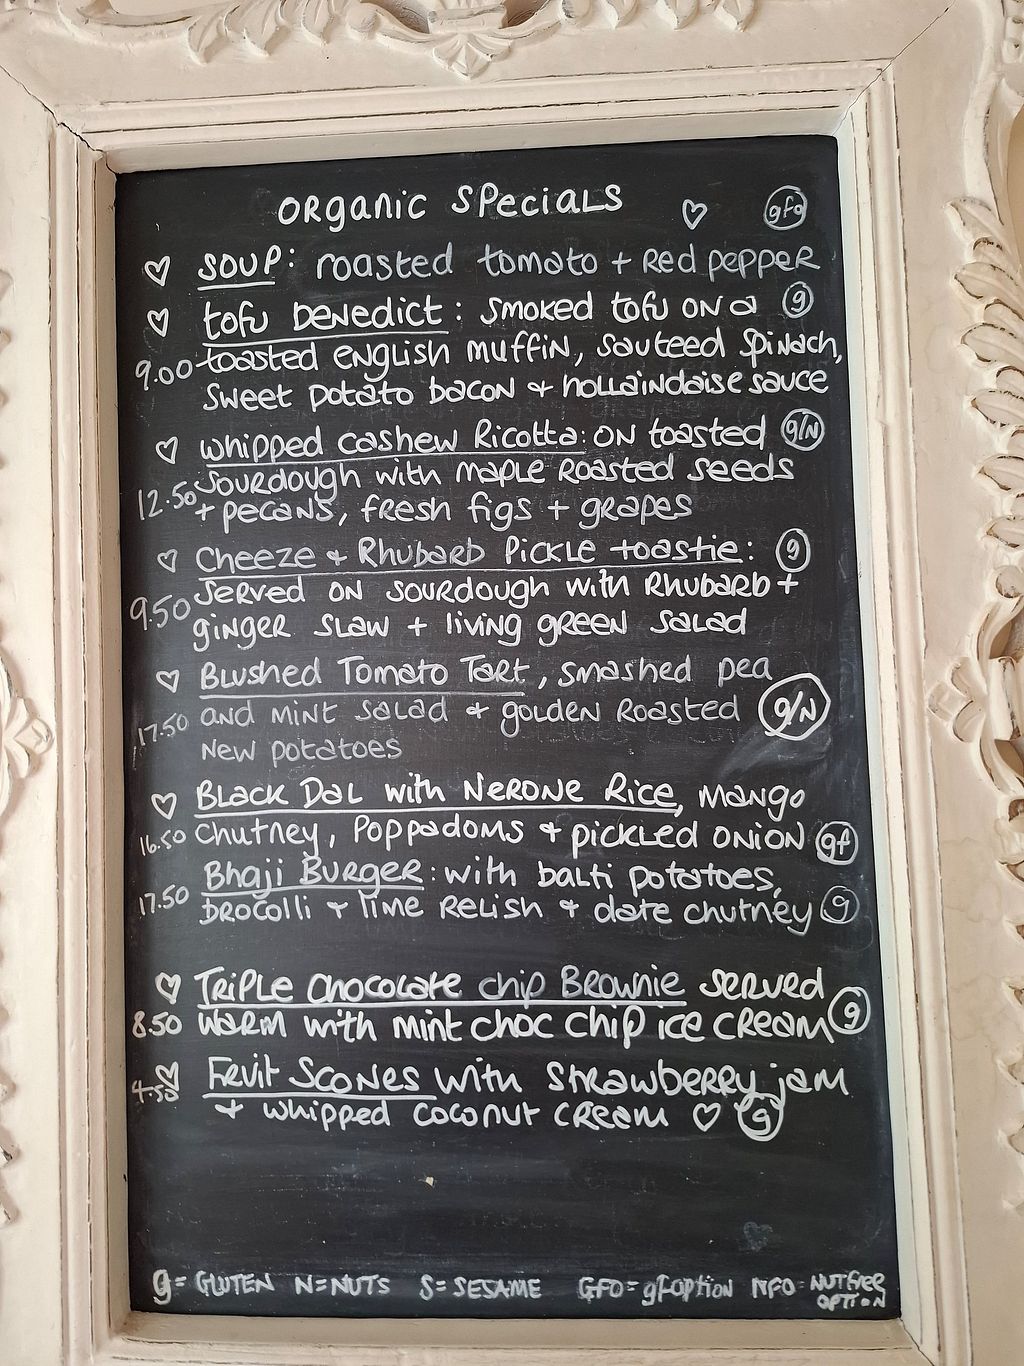 ORganic SPecialS
gfo
SOUP: roasted tomato + Red pepper
tofu benedict: smoked tofu on a g
9.00 toasted english muffin, sauteed spinach,
sweet potato bacon + hollaindaise sauce
whipped cashew Ricotta: on toasted g/N
12.50 sourdough with maple roasted seeds
+ pecans, fresh figs + grapes
Cheeze + Rhubarb Pickle toastie: g
9.50 served on sourdough with Rhubarb +
ginger slaw + living green salad
Blushed Tomato Tart, smashed pea
17.50 and mint salad + golden roasted g/N
new potatoes
Black Dal with Nerone Rice, mango
16.50 chutney, Poppadoms + pickled onion gf
Bhaji Burger: with balti potatoes,
17.50 brocolli + lime relish + date chutney g
Triple chocolate chip Brownie served
8.50 warm with mint choc chip ice cream g
4.50 Fruit Scones with strawberry jam
+ whipped coconut cream g
g= GLUTEN N=NUTS S=SESAME GFO=gfoption NFO=NUTfree
OPTION